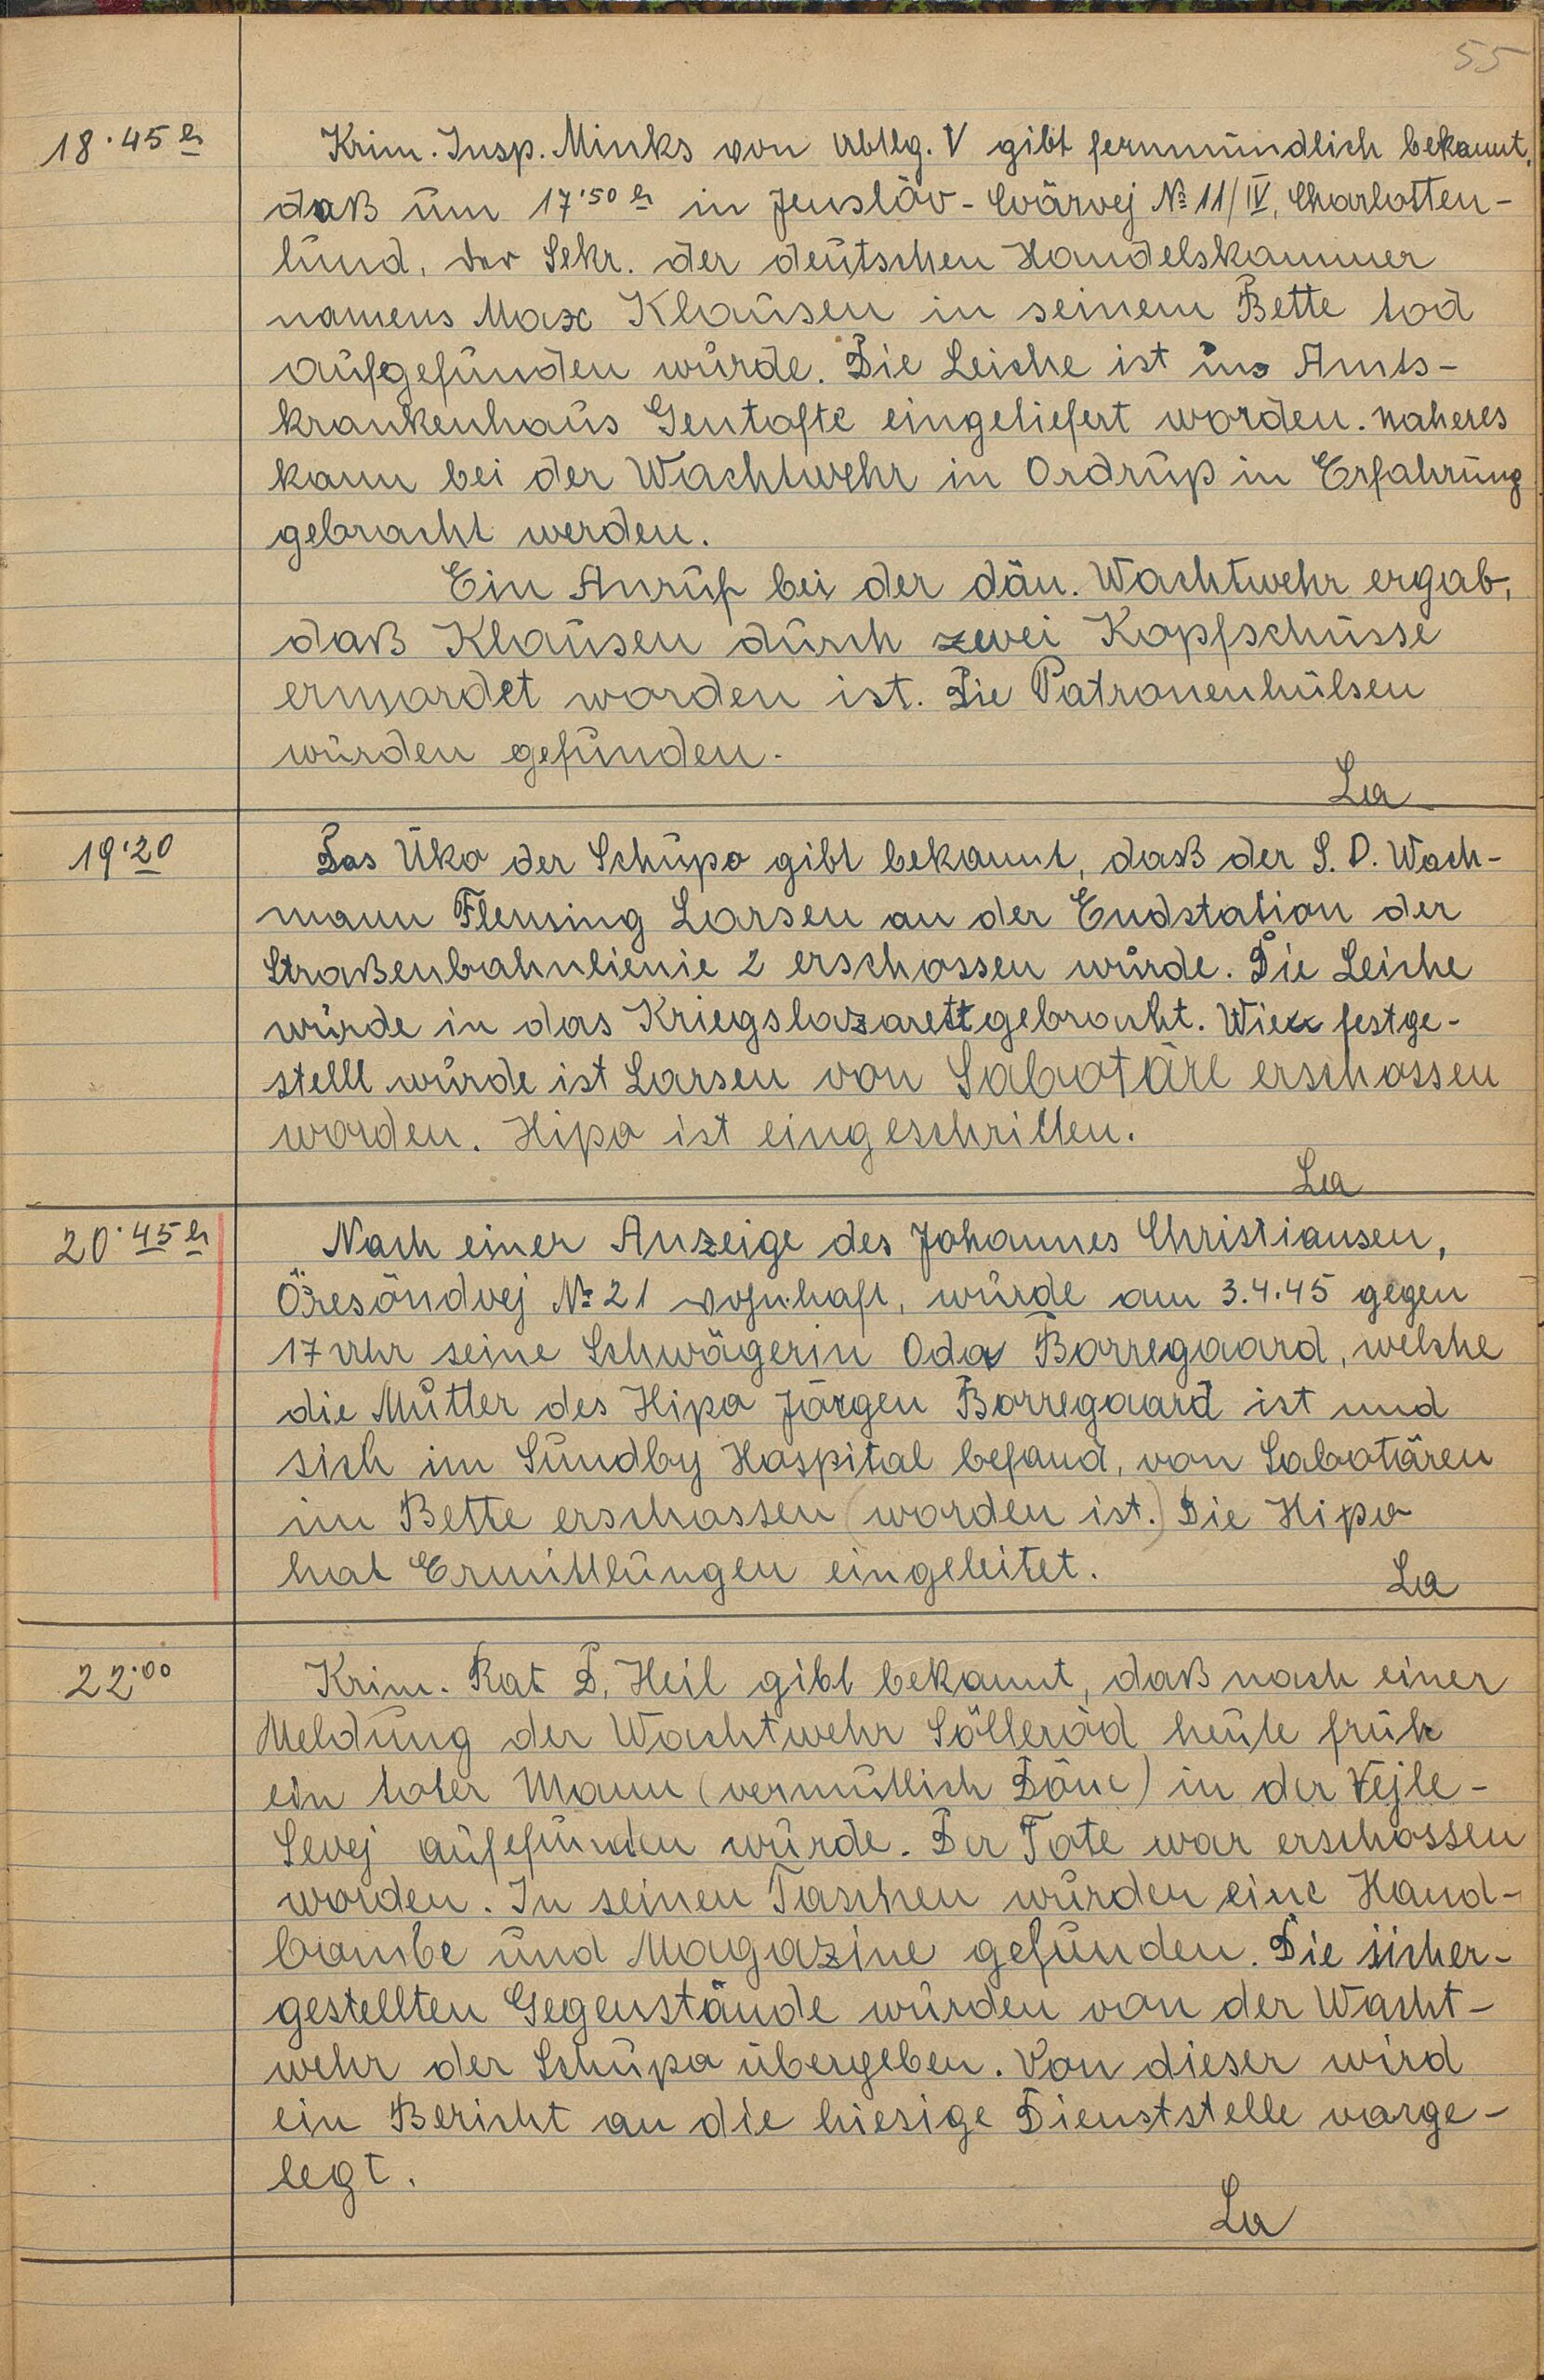 55
18.45 h Krim. Insp. Minks von Abtlg. V gibt fernmündlich bekannt,
daß um 17.50 h in Jenslöv-Evärvej № 11/IV, Charlotten-
lund, der Sekr. der deutschen Handelskammer
namens Max Klausen in seinem Bette tod
aufgefunden wurde. Die Leiche ist ins Amts-
krankenhaus Gentofte eingeliefert worden. naheres
kann bei der Wachtwehr in Ordrup in Erfahrung
gebracht werden.
Ein Anruf bei der dän. Wachtwehr ergab,
daß Klausen durch zwei Kopfschüsse
ermordet worden ist. Die Patronenhülsen
wurden gefunden.
La
19.20 Das Üko der Schupo gibt bekannt, daß der S.D. Wach-
mann Flemsing Larsen an der Endstation der
Straßenbahnlienie 2 erschossen wurde. Die Leiche
wurde in das Kriegslazarett gebracht. Wie festge-
stellt wurde ist Larsen von Sabotäre erschossen
worden. Hipo ist eingeschritten.
La
20.45 h Nach einer Anzeige des Johannes Christiansen,
Öresöndvej № 21 wohnhaft, wurde am 3.4.45 gegen
17 Uhr seine Schwägerin Oda Borregaard, welche
die Mutter des Hipo Jörgen Borregaard ist und
sich im Sundby Hospital befand, von Sabotären
im Bette erschossen (worden ist.) Die Hipo
hat Ermittlungen eingeleitet.
La
22.00 Krim. Rat D. Heil gibt bekannt, daß nach einer
Meldung der Wachtwehr Sölleröd heute früh
ein toter Mann (vermutlich Däne) in der Vejle-
Sevej aufefunden wurde. Der Tote war erschossen
worden. In seinen Taschen wurden eine Hand-
bombe und Magazine gefunden. Die sicher-
gestellten Gegenstände wurden von der Wacht-
wehr der Schupo übergeben. Von dieser wird
ein Bericht an die hiesige Dienststelle vorge-
legt.
La